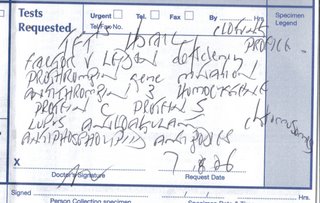 Tests Requested
Urgent Tel. Fax By Hrs
Tel/Fax No.
Specimen Legend
CLOTTING PROFILE
FACTOR V LEIDEN deficiency
PROTHROMBIN gene mutation
ANTITHROMBIN 3 HOMOCYSTEINE
PROTEIN C PROTEIN S
LUPUS ANTICOAGULANT
ANTIPHOSPHOLIPID ANTIBODIES
X
Doctor's Signature
Request Date
Signed Hrs.
Person Collecting specimen